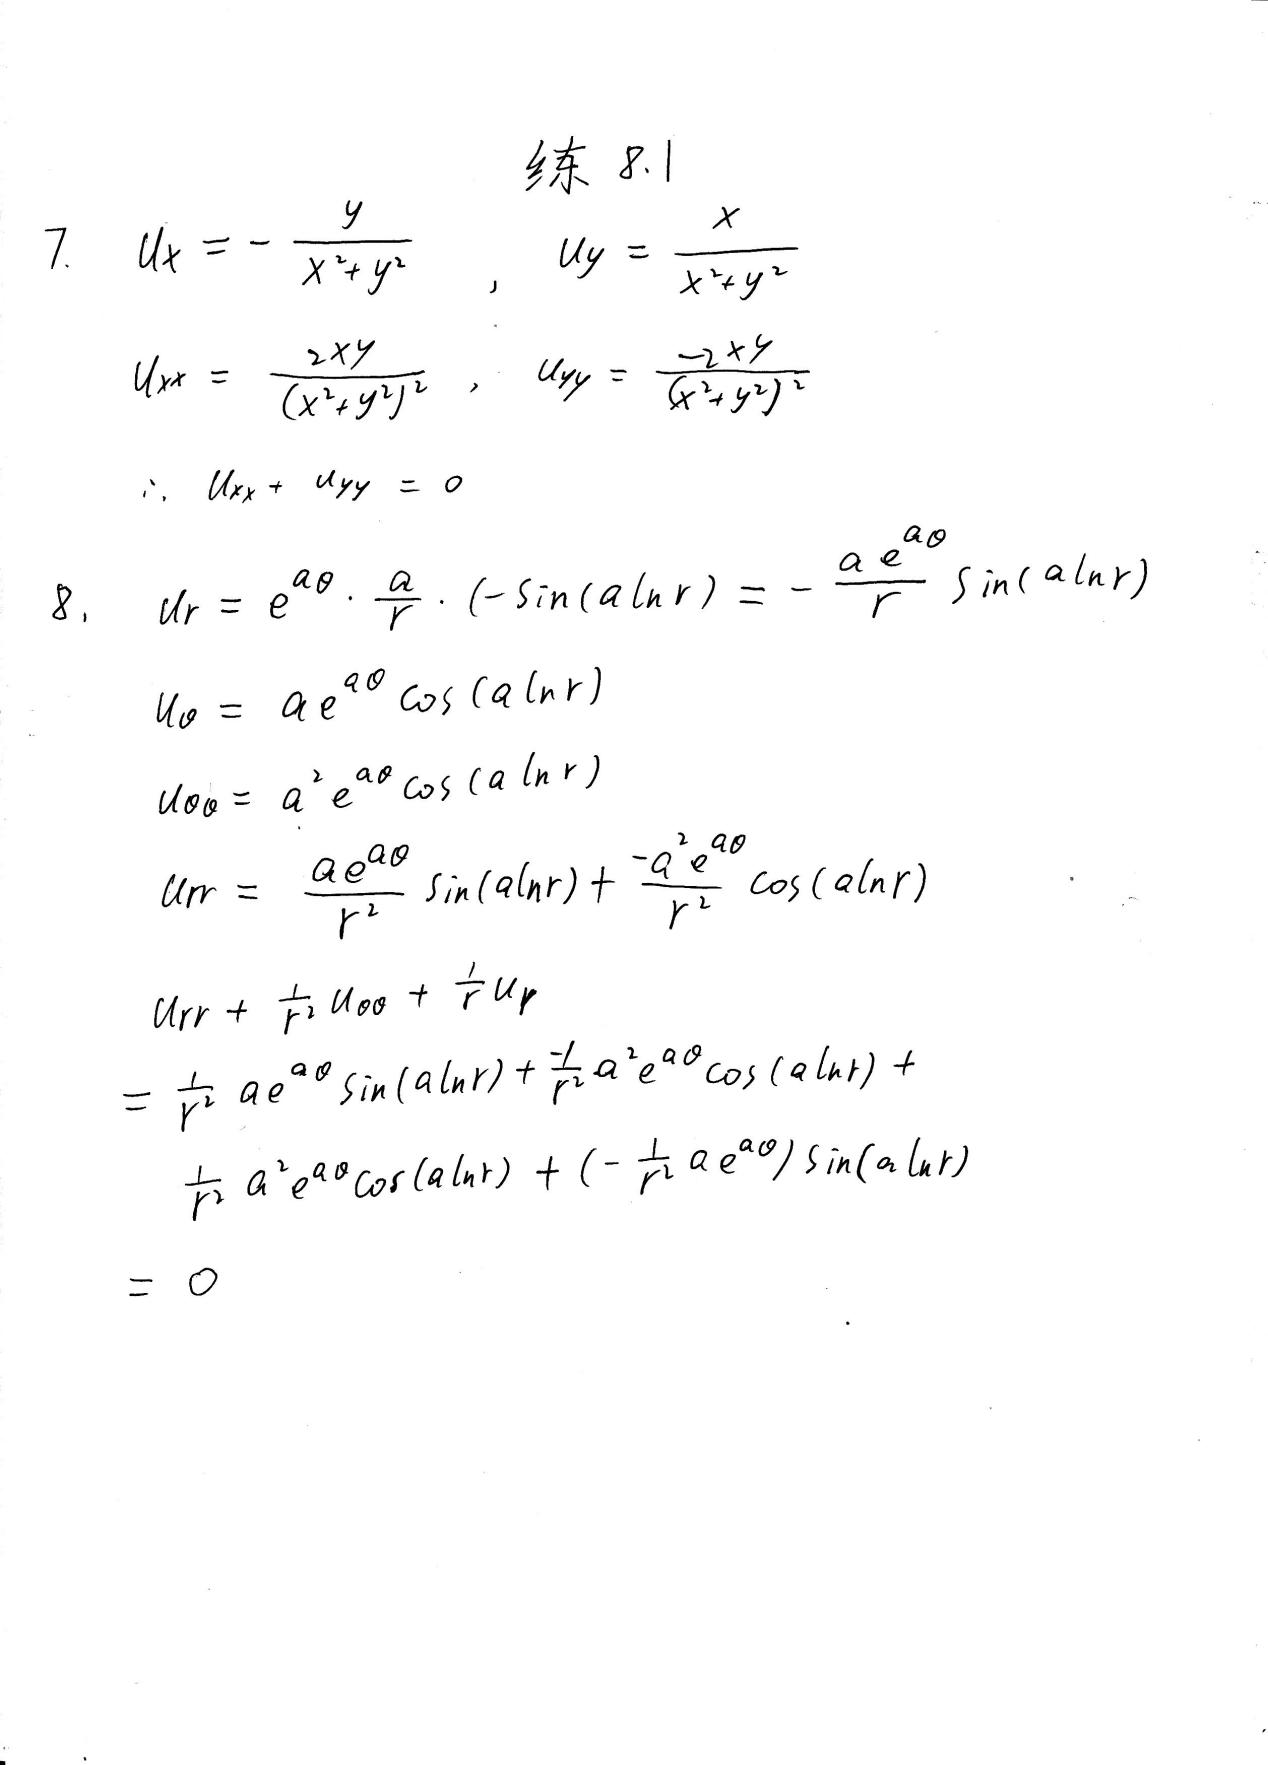 练 8.1
7. Ux = - y/(x²+y²) , Uy = x/(x²+y²)
Uxx = 2xy/(x²+y²)² , Uyy = -2xy/(x²+y²)²
∴ Uxx + Uyy = 0
8. Ur = e^(aθ) · a/r · (-Sin(alnr) = - ae^(aθ)/r Sin(alnr)
Uθ = ae^(aθ) cos(alnr)
Uθθ = a²e^(aθ) cos(alnr)
Urr = ae^(aθ)/r² Sin(alnr) + -a²e^(aθ)/r² cos(alnr)
Urr + 1/r² Uθθ + 1/r Ur
= 1/r² ae^(aθ) Sin(alnr) + -1/r² a²e^(aθ) cos(alnr) +
1/r² a²e^(aθ) cos(alnr) + (- 1/r² ae^(aθ)) Sin(alnr)
= 0